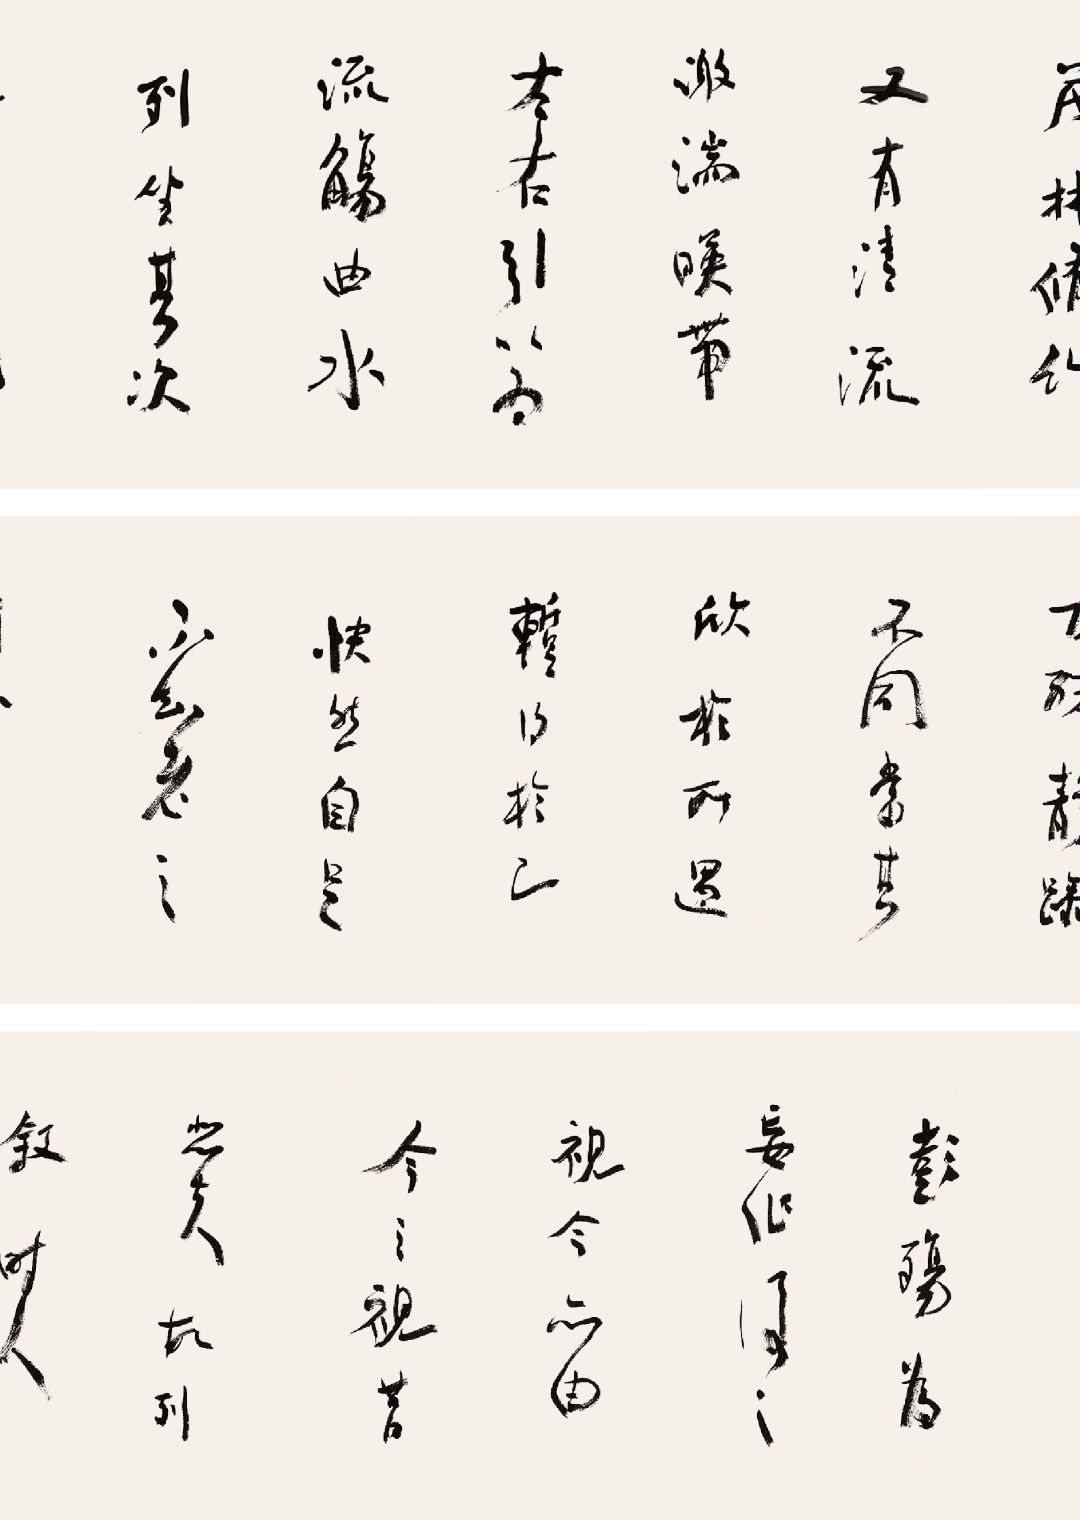 茂林脩竹
又有清流
激湍暎帶
左右引以為
流觴曲水
列坐其次
万殊靜躁
不同當其
欣於所遇
暫得於己
快然自足
不知老之
彭殤為
妄作後之
視今亦由
今之視昔
悲夫故列
叙时人